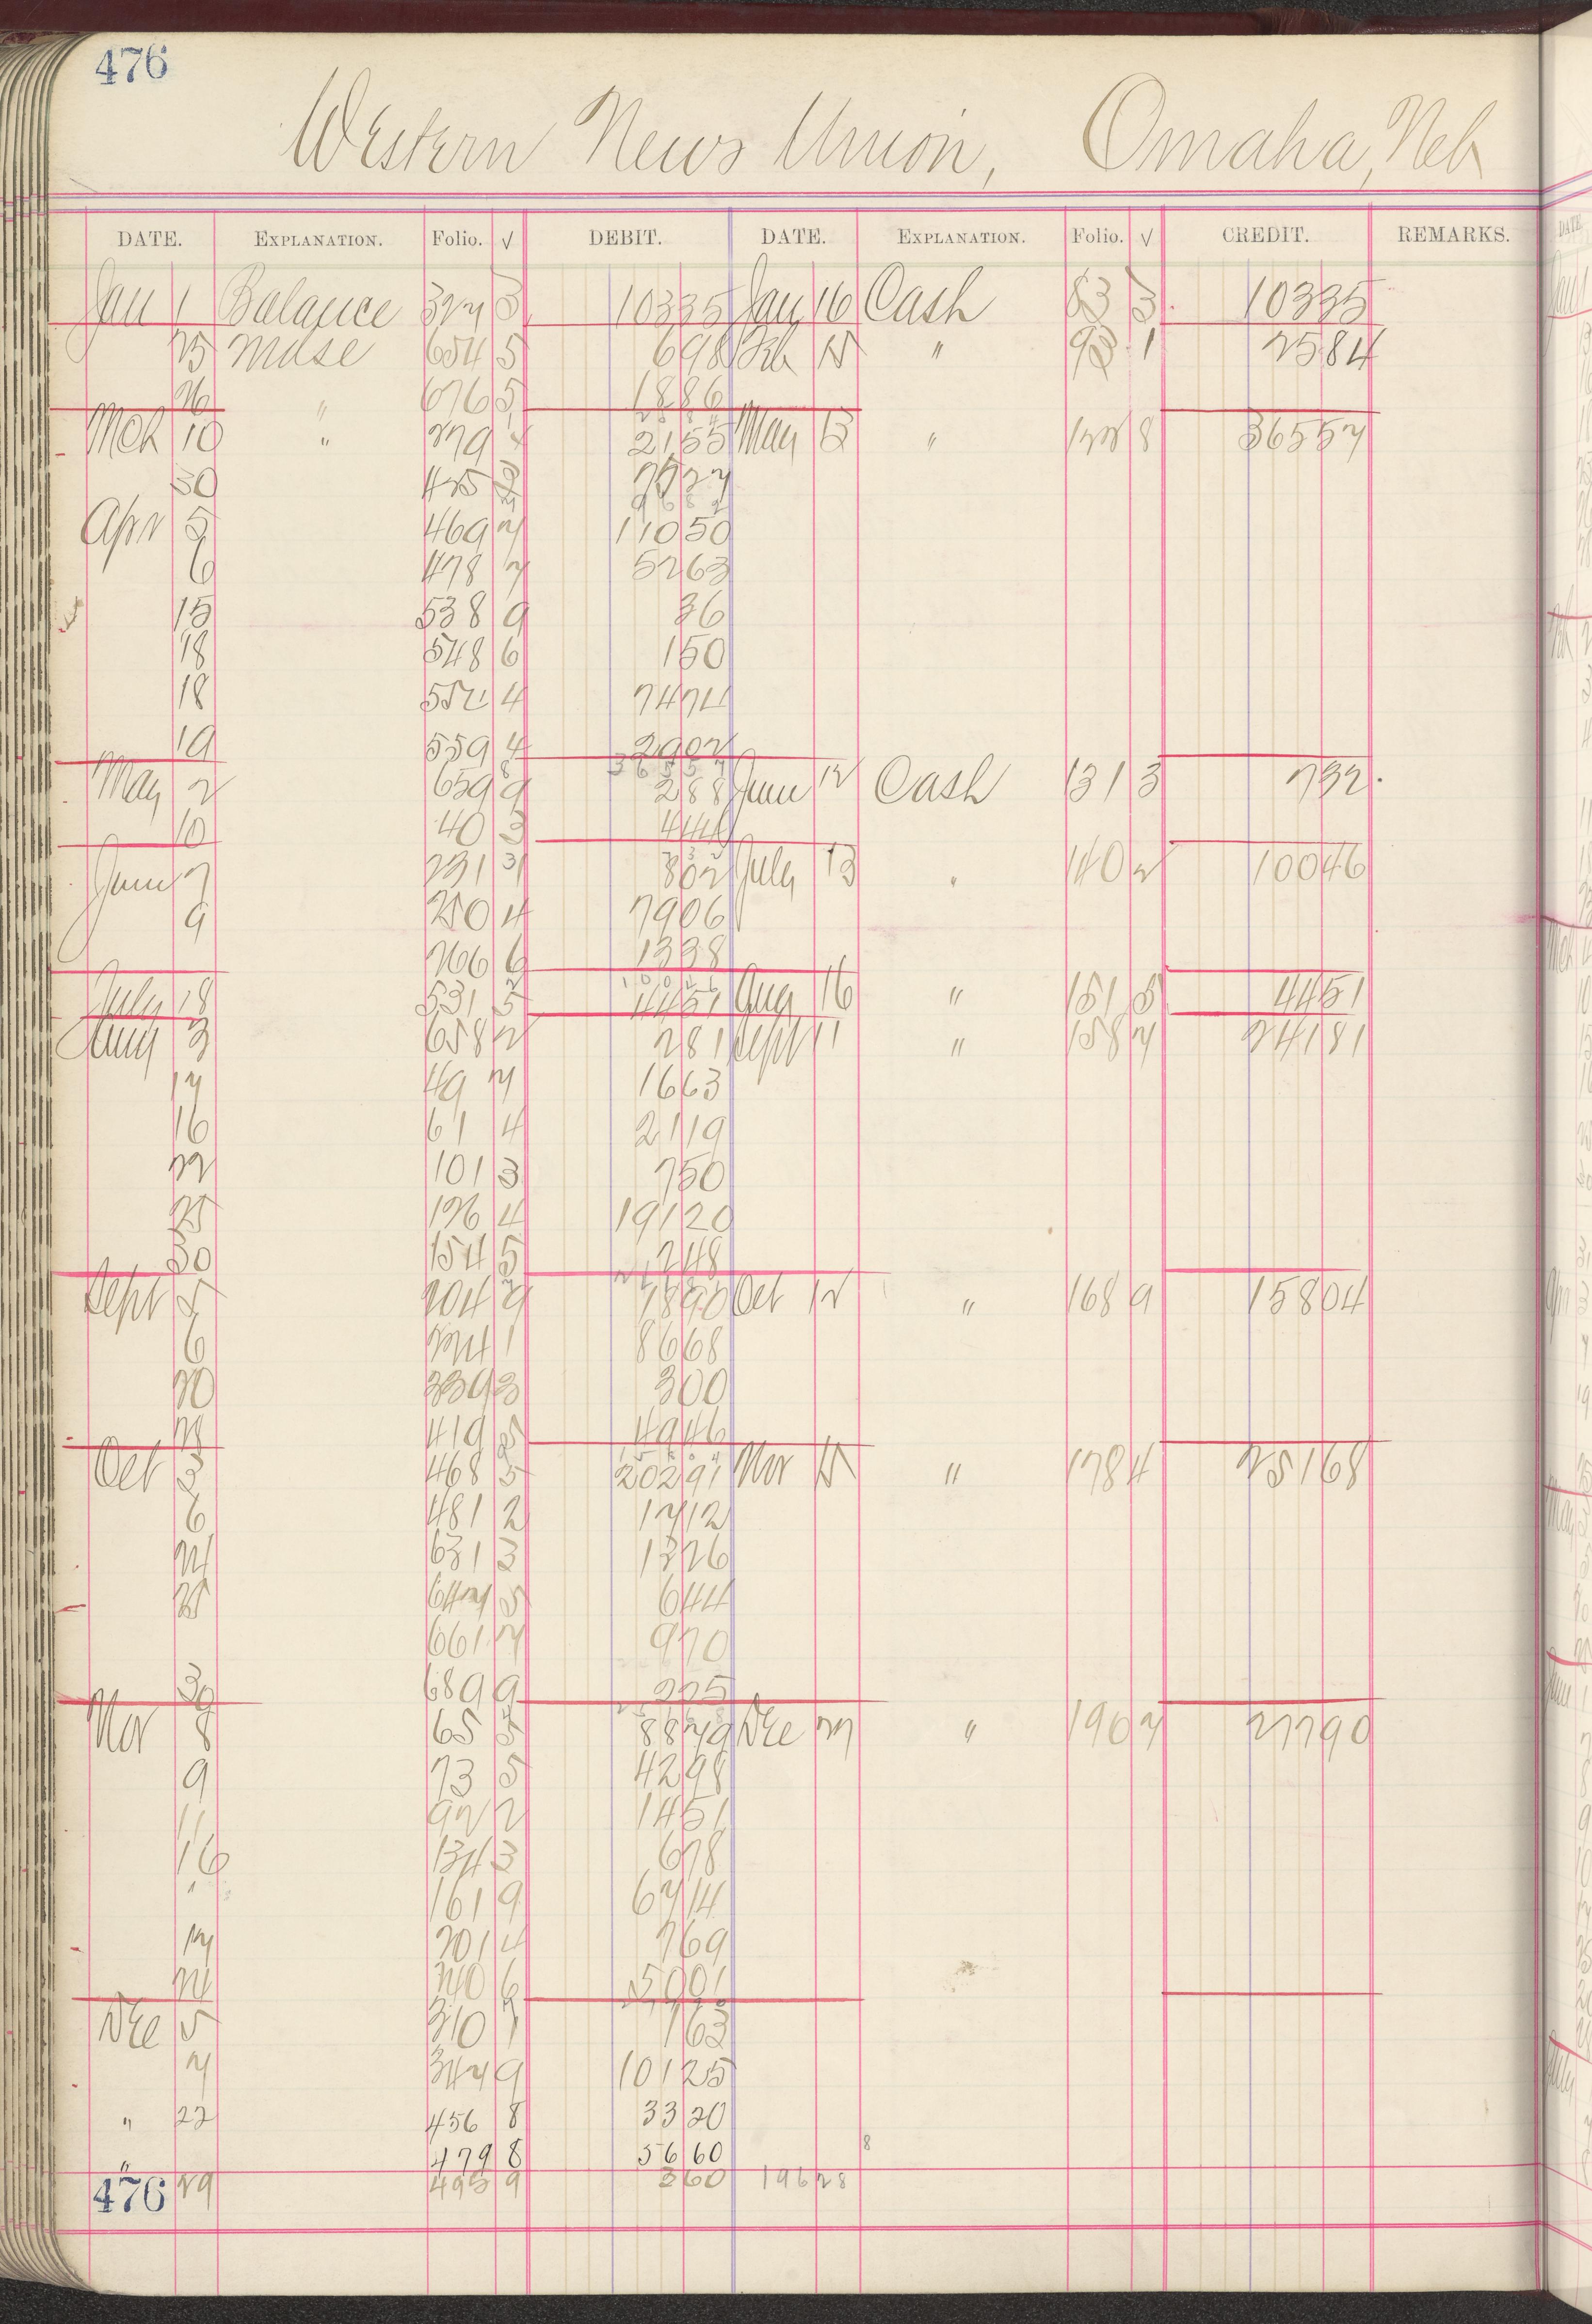 476
Western News Union, Omaha, Neb
DATE. EXPLANATION. Folio. √ DEBIT. DATE. EXPLANATION. Folio. √ CREDIT. REMARKS.
Jan 1 Balance 327 3 103 35 Jan 16 Cash 83 3 103 35
25 Mdse 654 5 6 98 Feb 15 " 93 1 25 84
26 " 676 5 18 86
Mch 10 " 279 21 55 May 13 " 122 8 365 57
30 425
Apr 5 469 7 110 50
6 478 7 52 63
15 538 9 36
18 548 6 1 50
18 552 4 74 74
19 559 4 29 02
May 2 659 9 2 88 June 12 Cash 131 3 7 32
10 40 3 4 44
June 7 231 3 8 02 July 13 " 140 2 100 46
9 250 4 79 06
266 6 13 38
July 18 531 5 44 51 Aug 16 " 151 5 44 51
Aug 3 658 2 2 81 Sept 11 " 158 7 241 81
12 49 7 16 63
16 61 4 21 19
22 101 3 7 50
25 126 4 191 20
30 154 5 2 48
Sept 5 204 9 18 90 Oct 12 " 168 9 158 04
6 224 1 86 68
20 339 3 3 00
28 419 5 49 46
Oct 3 468 5 202 91 Nov 15 " 178 4 251 68
6 481 2 17 12
24 631 3 13 26
25 647 5 6 44
661 7 9 70
29 689 9 2 25
Nov 8 65 5 88 79 Dec 27 " 190 7 277 90
9 73 5 42 98
11 92 2 14 51
16 134 3 6 78
" 161 9 67 14
17 201 4 7 69
24 240 6 50 01
Dec 5 310 7 1 63
7 347 9 101 25
" 22 456 8 33 20
" 479 8 56 60
476 29 495 9 3 60 196 28